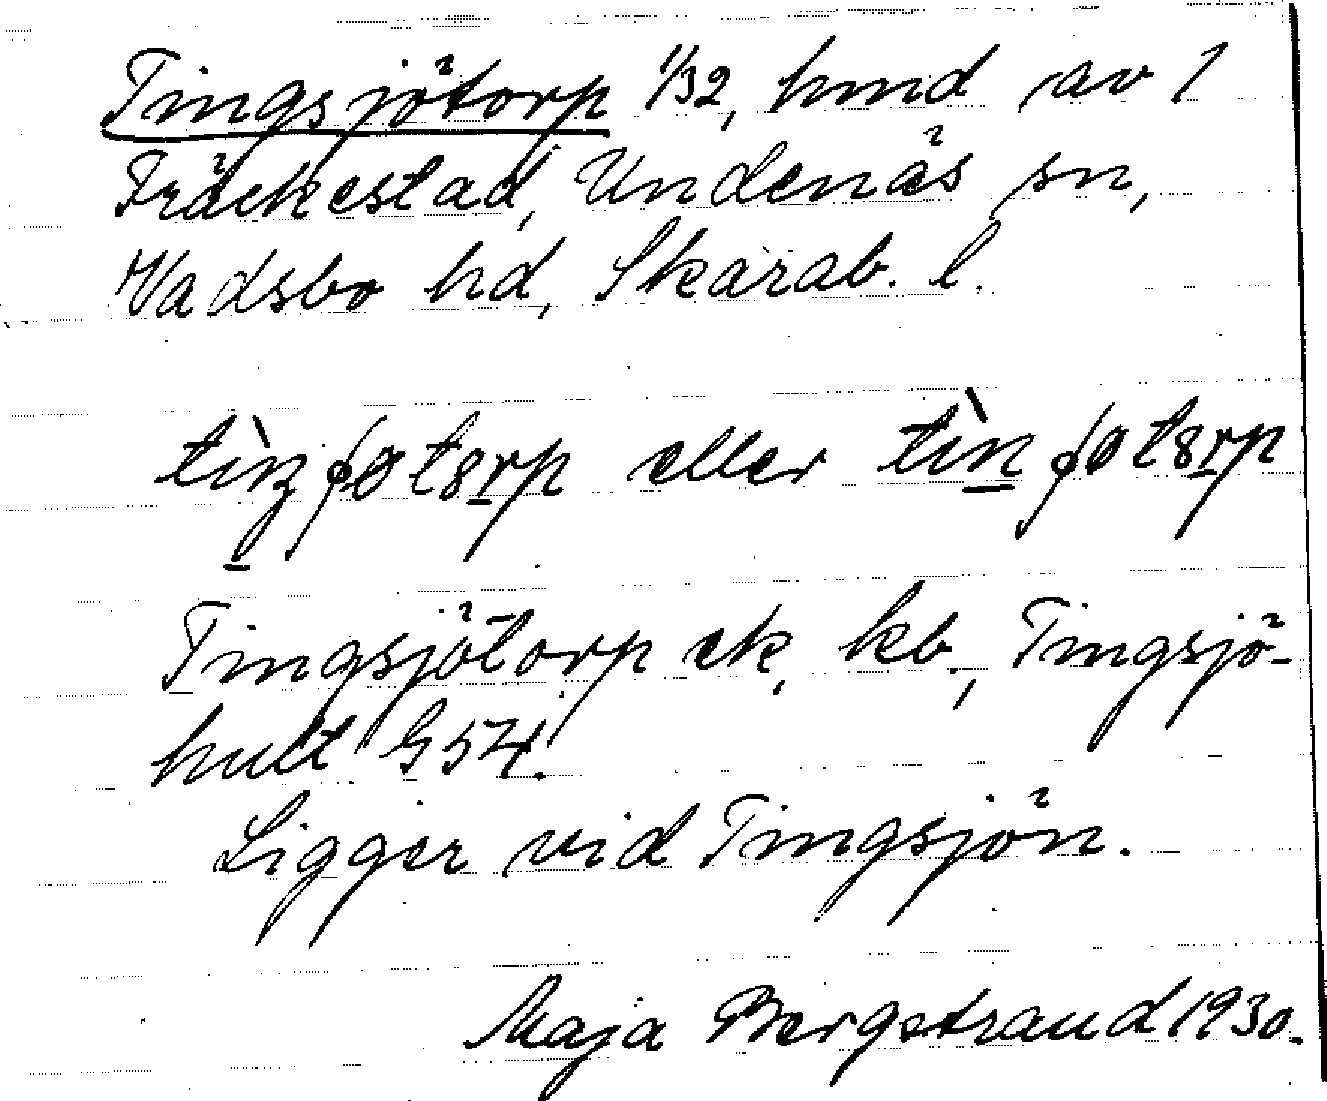 Tingsjötorp 1/32, hmd av 1
Fräckestad, Undenäs sn,
Vadsbo hd, Skarab. l.
eller
Tingsjötorp ek, kb, Tingsjö-
hult G 54.
Ligger vid Tingsjön.
Maja Bergstrand 1930.